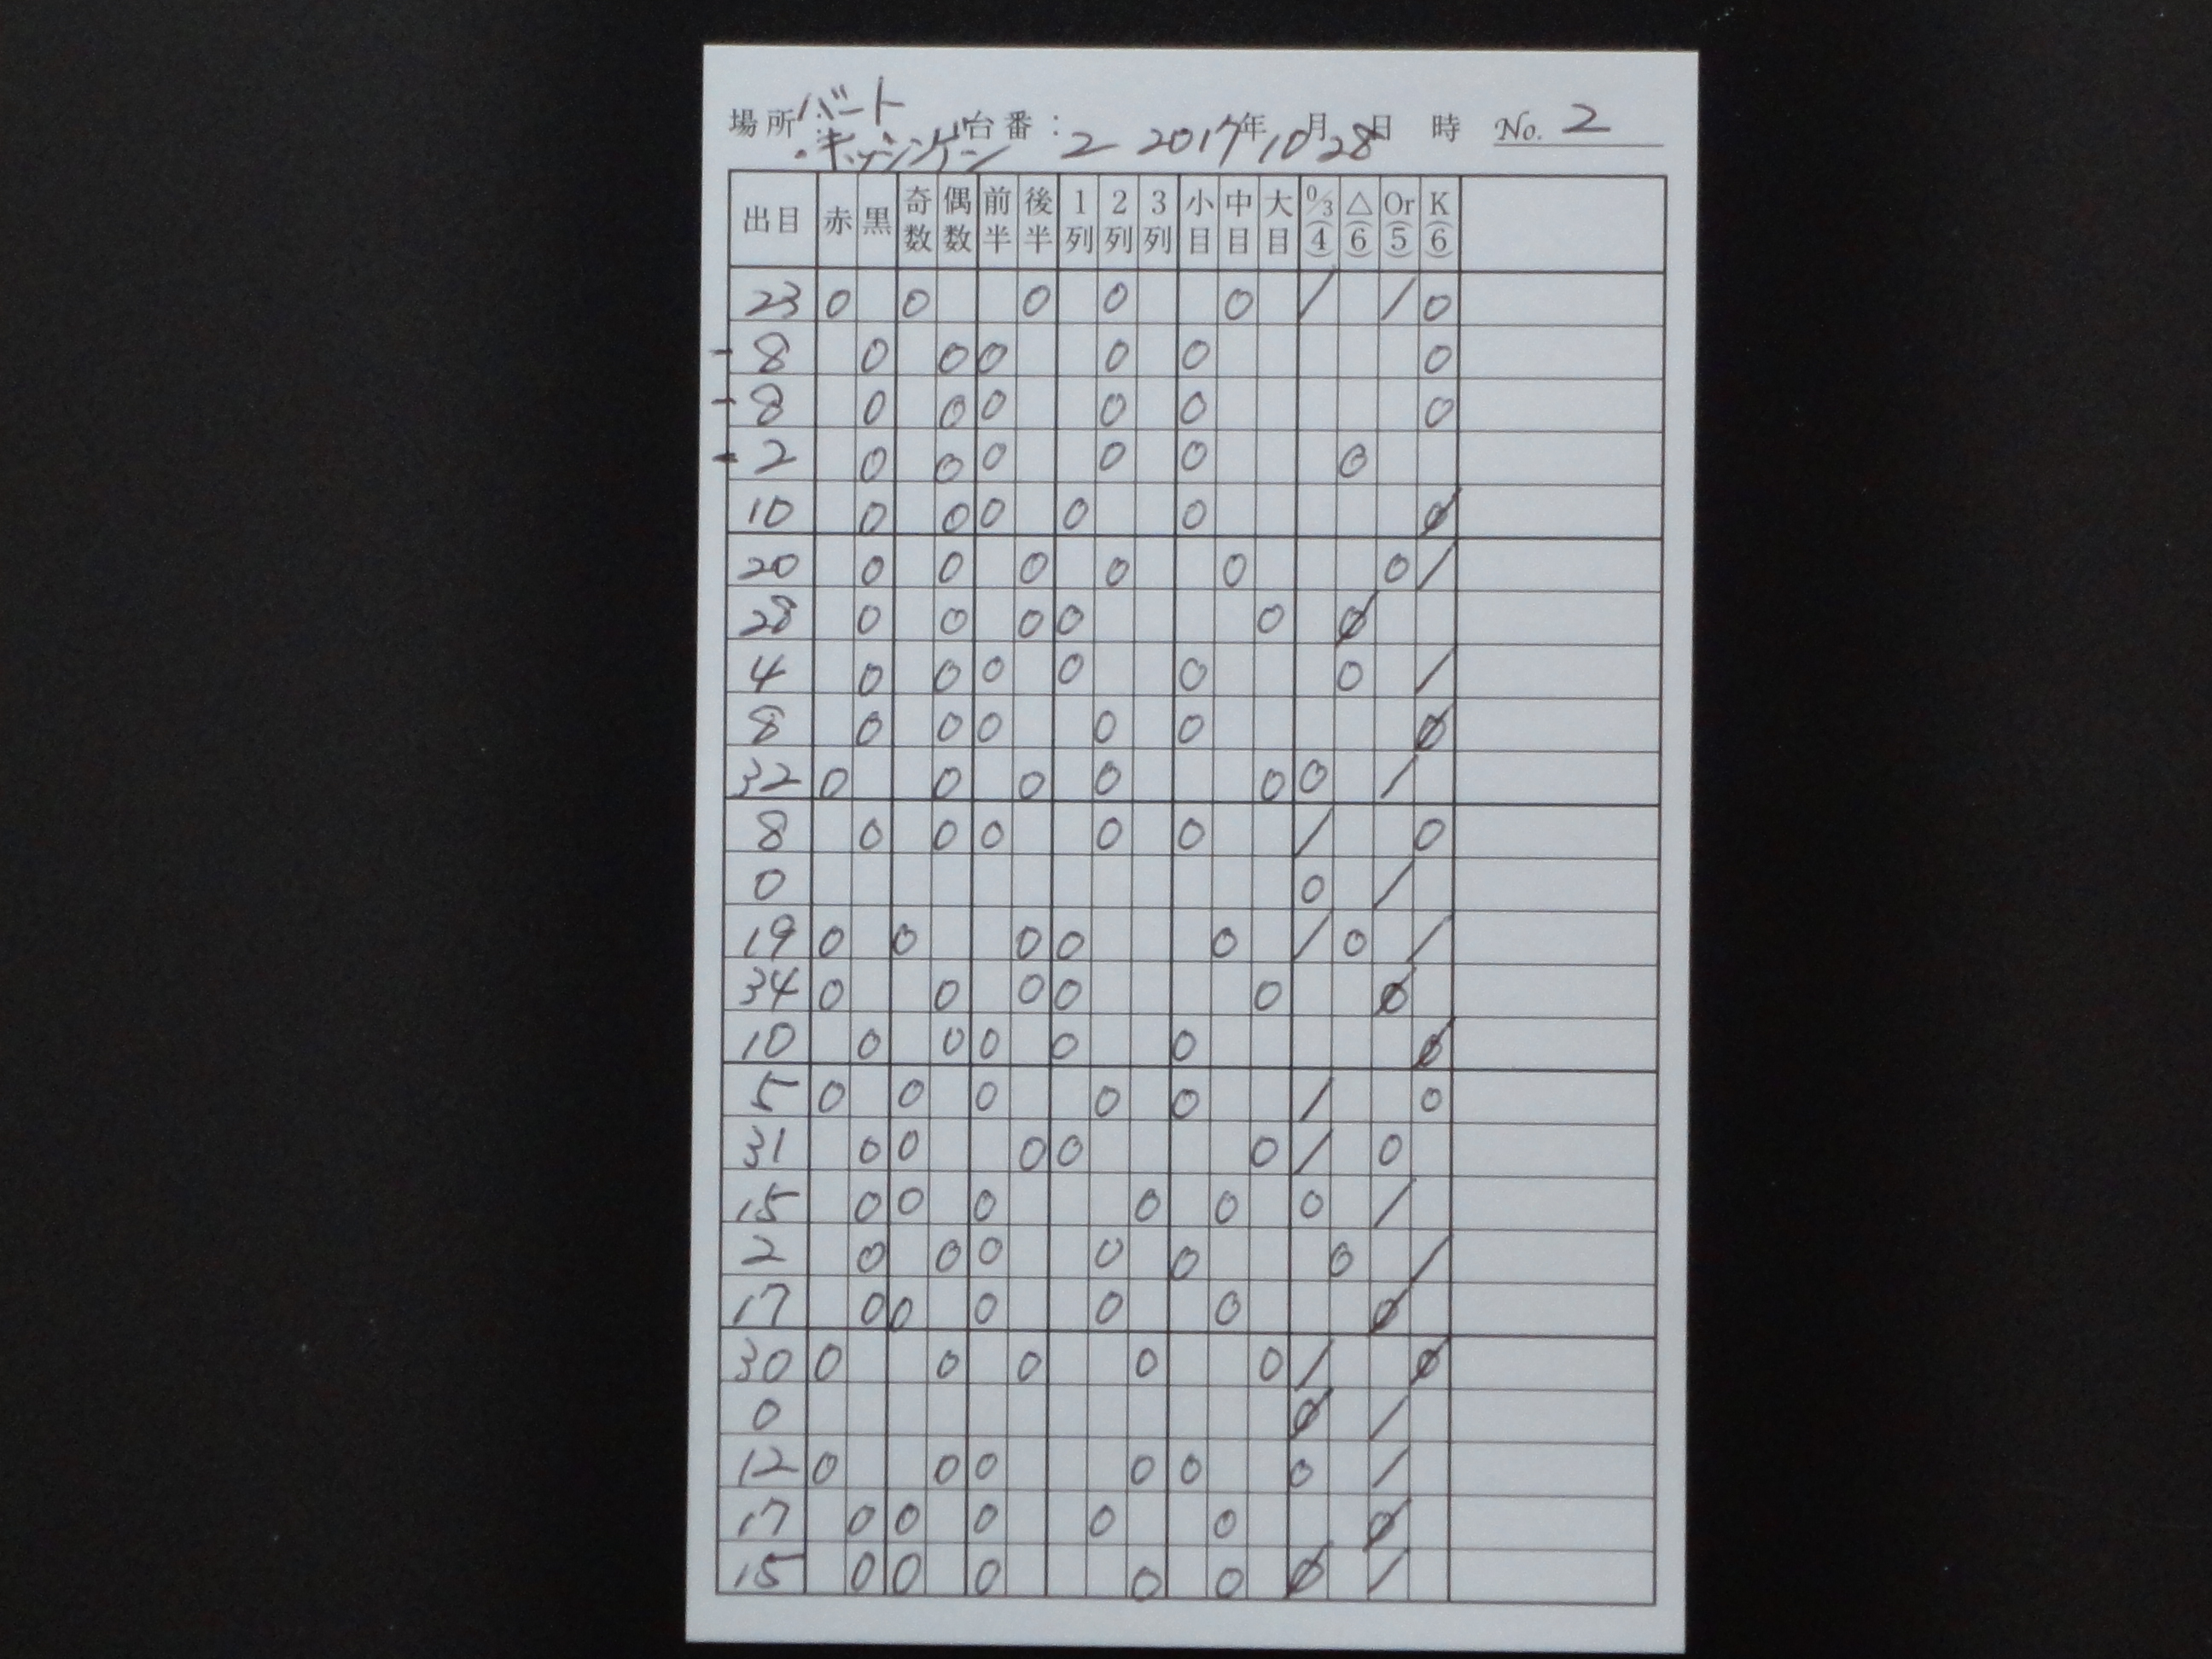 場所 バート・キッシンゲン 台番: 2 2017年10月28日 時 No. 2
出目 赤 黒 奇数 偶数 前半 後半 1列 2列 3列 小目 中目 大目 0/3(4) △(6) Or(5) K(6)
23 0 0 0 0 0 / / 0
8 0 0 0 0 0 0
8 0 0 0 0 0 0
2 0 0 0 0 0 0
10 0 0 0 0 0 Ø
20 0 0 0 0 0 0 /
28 0 0 0 0 0 Ø
4 0 0 0 0 0 0 /
8 0 0 0 0 0 Ø
32 0 0 0 0 0 0 /
8 0 0 0 0 0 / 0
0 0 /
19 0 0 0 0 0 / 0 /
34 0 0 0 0 0 Ø
10 0 0 0 0 0 Ø
5 0 0 0 0 0 / 0
31 0 0 0 0 0 / 0
15 0 0 0 0 0 0 /
2 0 0 0 0 0 0 /
17 0 0 0 0 0 Ø
30 0 0 0 0 0 / Ø
0 Ø /
12 0 0 0 0 0 0 /
17 0 0 0 0 0 Ø
15 0 0 0 0 0 Ø /